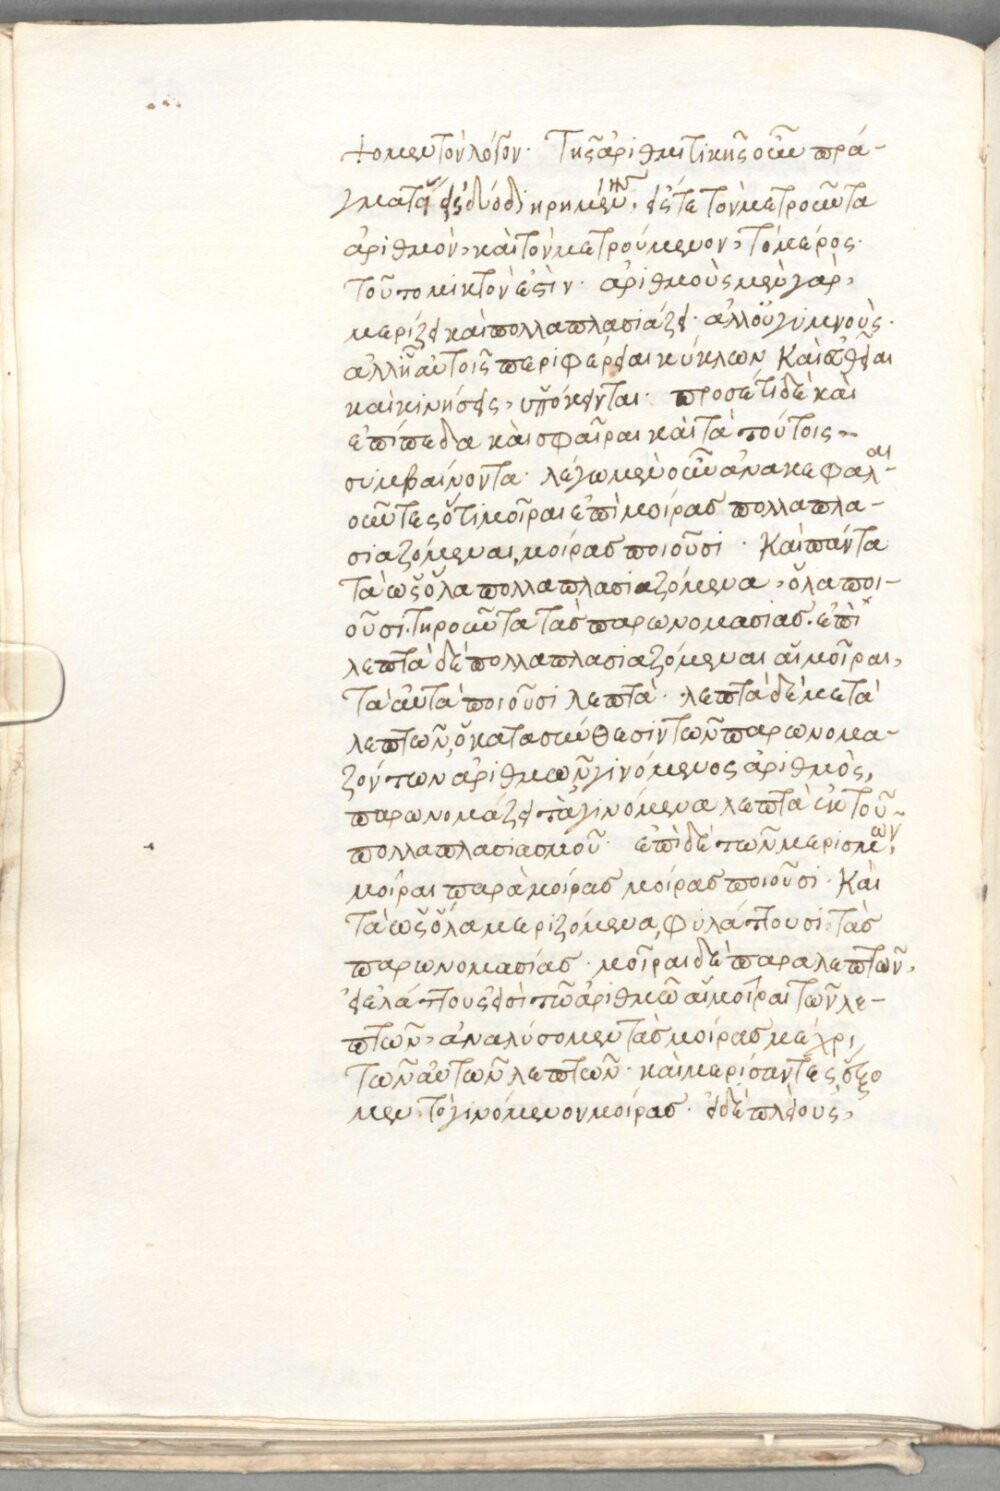 ψομεν τὸν λόγον· Τῆς ἀριθμητικῆς οὖν πρα-
γματείας εἰς δύο διῃρημένης, εἴς τε τὸν μετροῦντα
ἀριθμὸν, καὶ τὸν μετρούμενον, τὸ μέρος
τοῦτο μικτὸν ἐστὶν· ἀριθμοὺς μὲν γὰρ,
μερίζει καὶ πολλαπλασιάζει· ἀλλ' οὐ γυμνοὺς·
ἀλλ' ἐν αὐτοῖς περιφέρειαι κύκλων καὶ εὐθεῖαι
καὶ κινήσεις, ὑπόκεινται· προσέτι δὲ καὶ
ἐπίπεδα καὶ σφαῖραι καὶ τὰ τούτοις
συμβαίνοντα· λέγωμεν οὖν ἀνακεφαλαι-
οῦντες ὅτι μοῖραι ἐπὶ μοίρας πολλαπλα-
σιαζόμεναι, μοίρας ποιοῦσι· Καὶ πάντα
τὰ ὡς ὅλα πολλαπλασιαζόμενα, ὅλα ποι-
οῦσι· τηροῦντα τὰς παρωνομασίας· ἐπὶ
λεπτὰ δὲ πολλαπλασιαζόμεναι αἱ μοῖραι,
τὰ αὐτὰ ποιοῦσι λεπτὰ· λεπτὰ δὲ μετὰ
λεπτῶν, ὁ κατὰ σύνθεσιν τῶν παρωνομα-
ζόντων ἀριθμῶν γινόμενος ἀριθμὸς,
παρωνομάζει τὰ γινόμενα λεπτὰ ἐκ τοῦ
πολλαπλασιασμοῦ· ἐπὶ δὲ τῶν μερισμῶν,
μοῖραι παρὰ μοίρας μοίρας ποιοῦσι· Καὶ
τὰ ὡς ὅλα μεριζόμενα, φυλάττουσι τὰς
παρωνομασίας· μοῖραι δὲ παρὰ λεπτῶν,
εἰ ἐλάττους εἰσὶ τῷ ἀριθμῷ αἱ μοῖραι τῶν λε-
πτῶν, ἀναλύσομεν τὰς μοίρας μέχρι
τῶν αὐτῶν λεπτῶν· καὶ μερίσαντες, ἕξο
μεν τὸ γινόμενον μοίρας· εἰ δὲ πλείους,